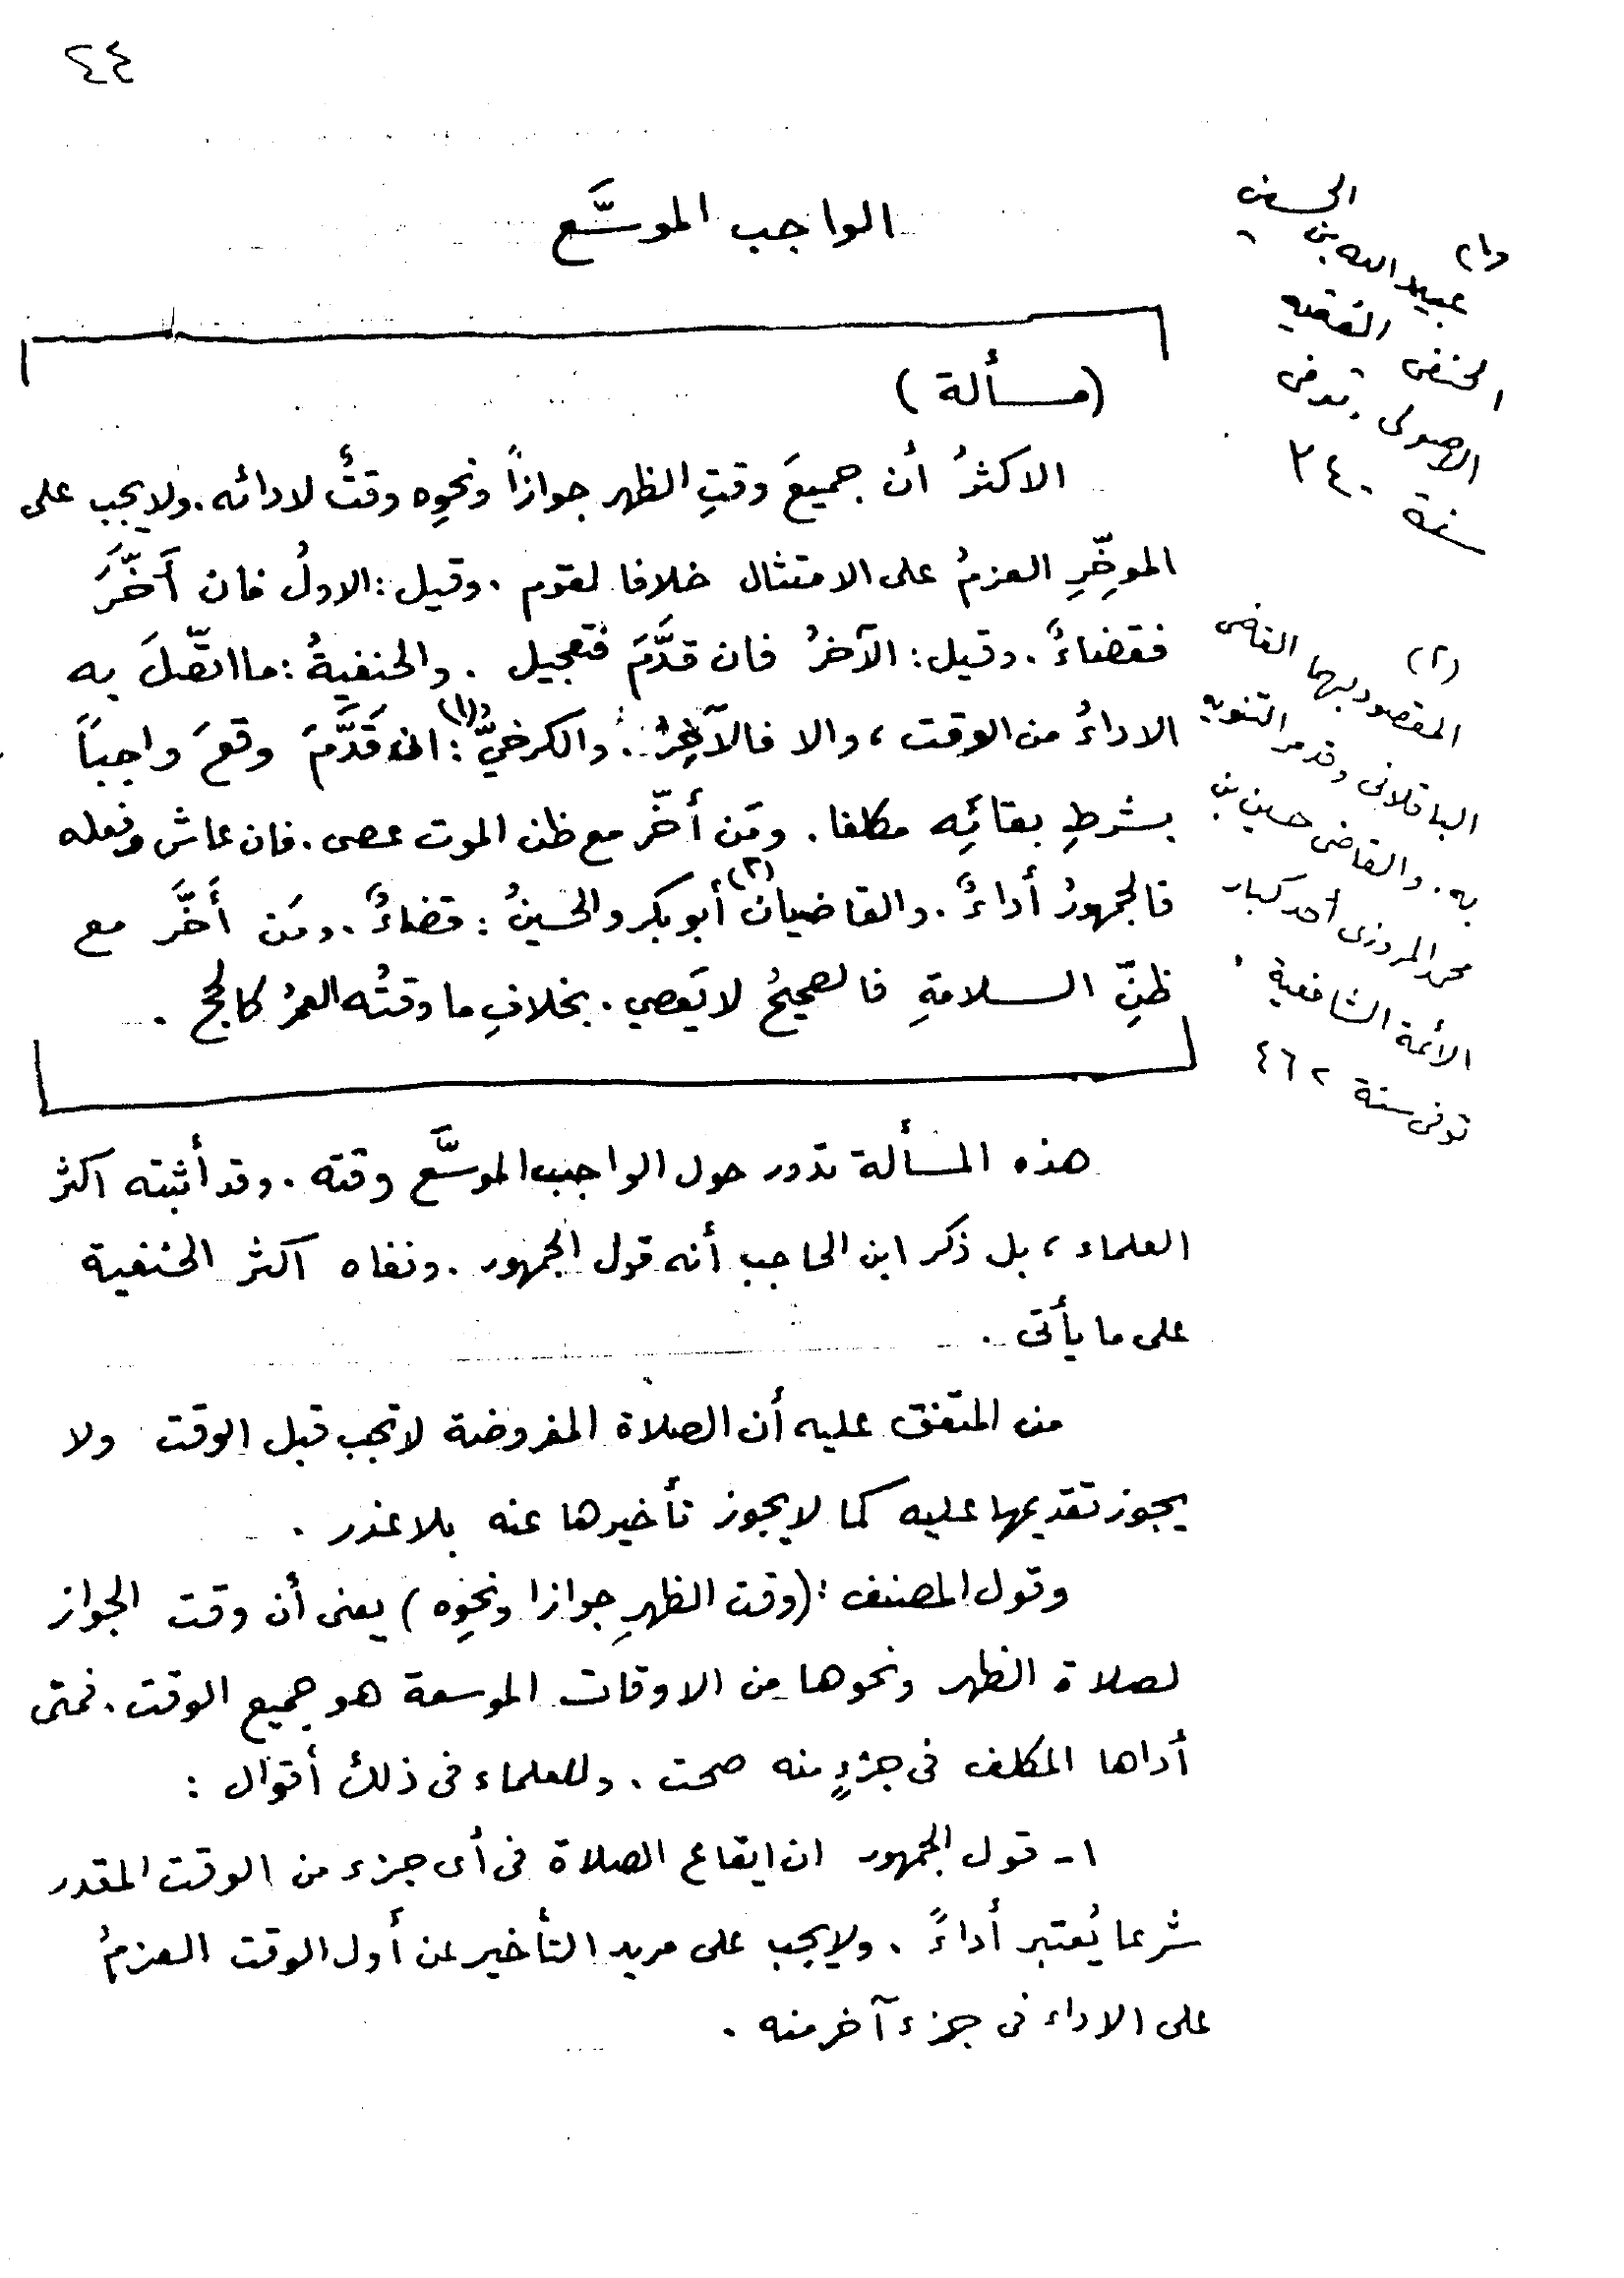 ٢٤٤
الواجب الموسَّع
(مسألة)
الاكثرُ أن جميعَ وقتِ الظهر جوازاً ونحوِه وقتٌ لادائه. ولا يجب على
الموخِّرِ العزمُ على الامتثال خلافا لقوم. وقيل: الاولُ فان أَخَّرَ
فقضاءٌ. وقيل: الآخرُ فان قدَّمَ فتعجيل. والحنفيةُ: ما اتّصلَ به
الاداءُ من الوقت، والا فالآخِرُ. والكرخيُّ(١): ان قَدَّمَ وقعَ واجباً
بشرطِ بقائِه مكلفا. ومَن أخّر مع ظن الموت عصى. فان عاش وفعله
فالجمهورُ أداءٌ. والقاضيان(٢) أبو بكر والحسينُ: قضاءٌ. ومَن أَخَّرَ مع
ظنِّ السلامةِ فالصحيحُ لا يَعصي. بخلافِ ما وقتُه العمرُ كالحج.
هذه المسألة تدور حول الواجب الموسَّع وقته. وقد أثبته اكثر
العلماء، بل ذكر ابن الحاجب أنه قول الجمهور. ونفاه اكثر الحنفية
على ما يأتى.
من المتفق عليه أن الصلاة المفروضة لا تجب قبل الوقت ولا
يجوز تقديمها عليه كما لا يجوز تأخيرها عنه بلا عذر.
وقول المصنف: (وقت الظهرِ جوازا ونحوِه) يعنى أن وقت الجواز
لصلاة الظهر ونحوها من الاوقات الموسعة هو جميع الوقت. فمتى
أداها المكلف فى جزءٍ منه صحت. وللعلماء فى ذلك أقوال:
١- قول الجمهور ان ايقاع الصلاة فى أى جزء من الوقت المقدر
شرعا يُعتبر أداءً. ولا يجب على مريد التأخير عن أول الوقت العزمُ
على الاداء فى جزء آخر منه.
(١) عبيد الله بن الحسين
الحنفى الفقيه
الاصولى. توفى
سنة ٣٤٠
(٢) المقصود بهما القاضى
الباقلانى وقد مر التنويه
به. والقاضى حسين بن
محمد المروزى أحد كبار
الأئمة الشافعية،
توفى سنة ٤٦٢